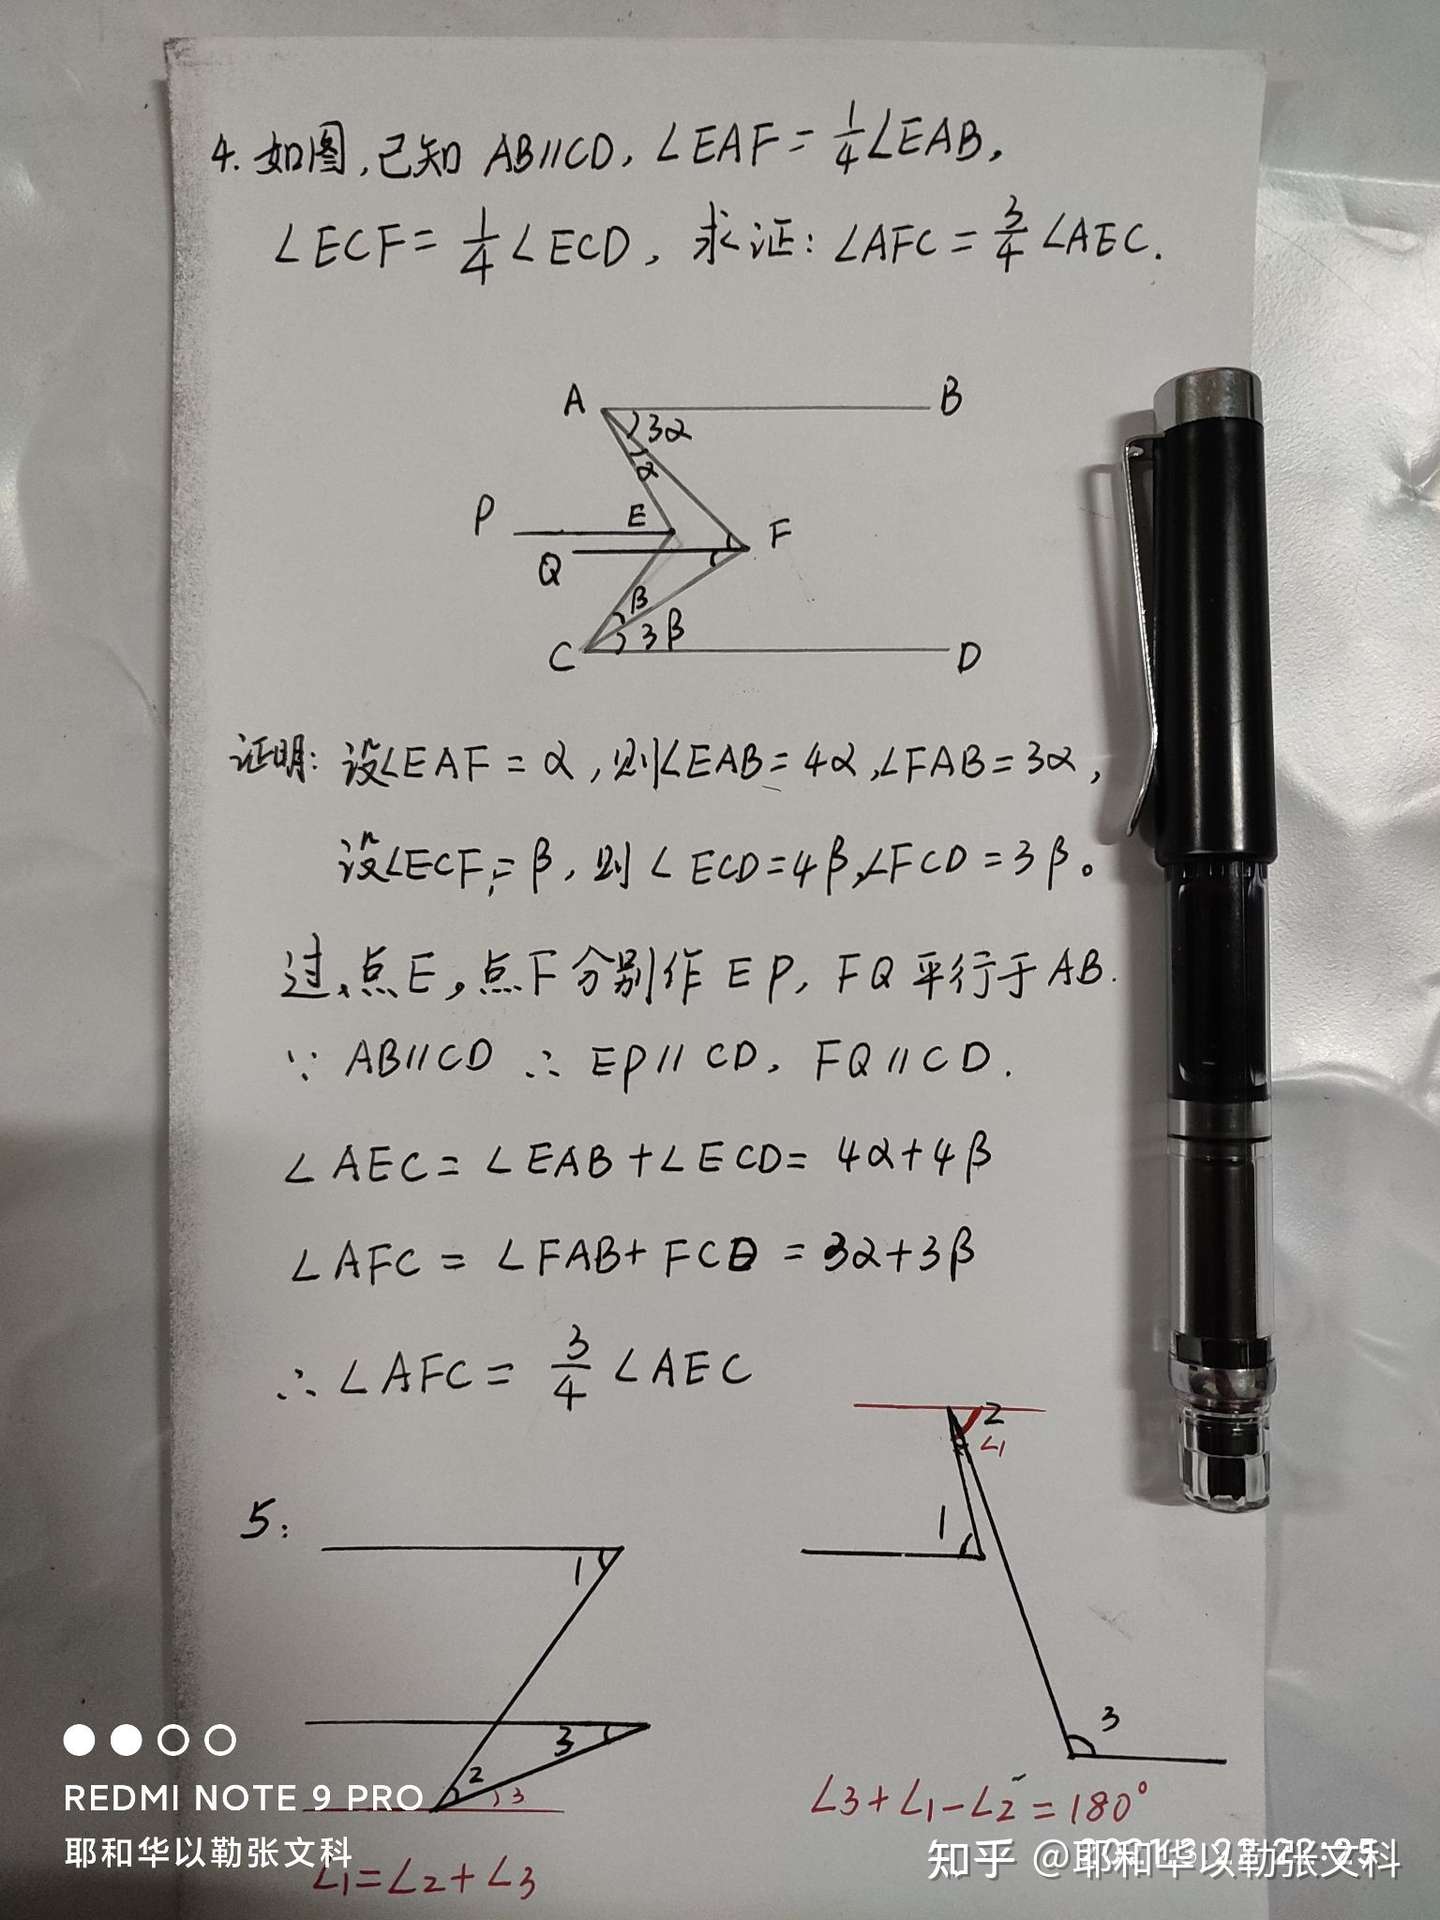 4. 如图,已知 AB∥CD, ∠EAF = 1/4 ∠EAB,
∠ECF = 1/4 ∠ECD, 求证: ∠AFC = 3/4 ∠AEC.
A
B
3α
α
P
E
F
Q
β
3β
C
D
证明: 设∠EAF = α, 则∠EAB = 4α, ∠FAB = 3α,
设∠ECF = β, 则 ∠ECD = 4β, ∠FCD = 3β。
过点E,点F分别作 EP, FQ 平行于 AB.
∵ AB∥CD ∴ EP∥CD, FQ∥CD.
∠AEC = ∠EAB + ∠ECD = 4α + 4β
∠AFC = ∠FAB + FCD = 3α + 3β
∴ ∠AFC = 3/4 ∠AEC
5:
1
3
2
3
∠1 = ∠2 + ∠3
2
∠1
1
3
∠3 + ∠1 - ∠2 = 180°
REDMI NOTE 9 PRO
耶和华以勒张文科
知乎 @耶和华以勒张文科